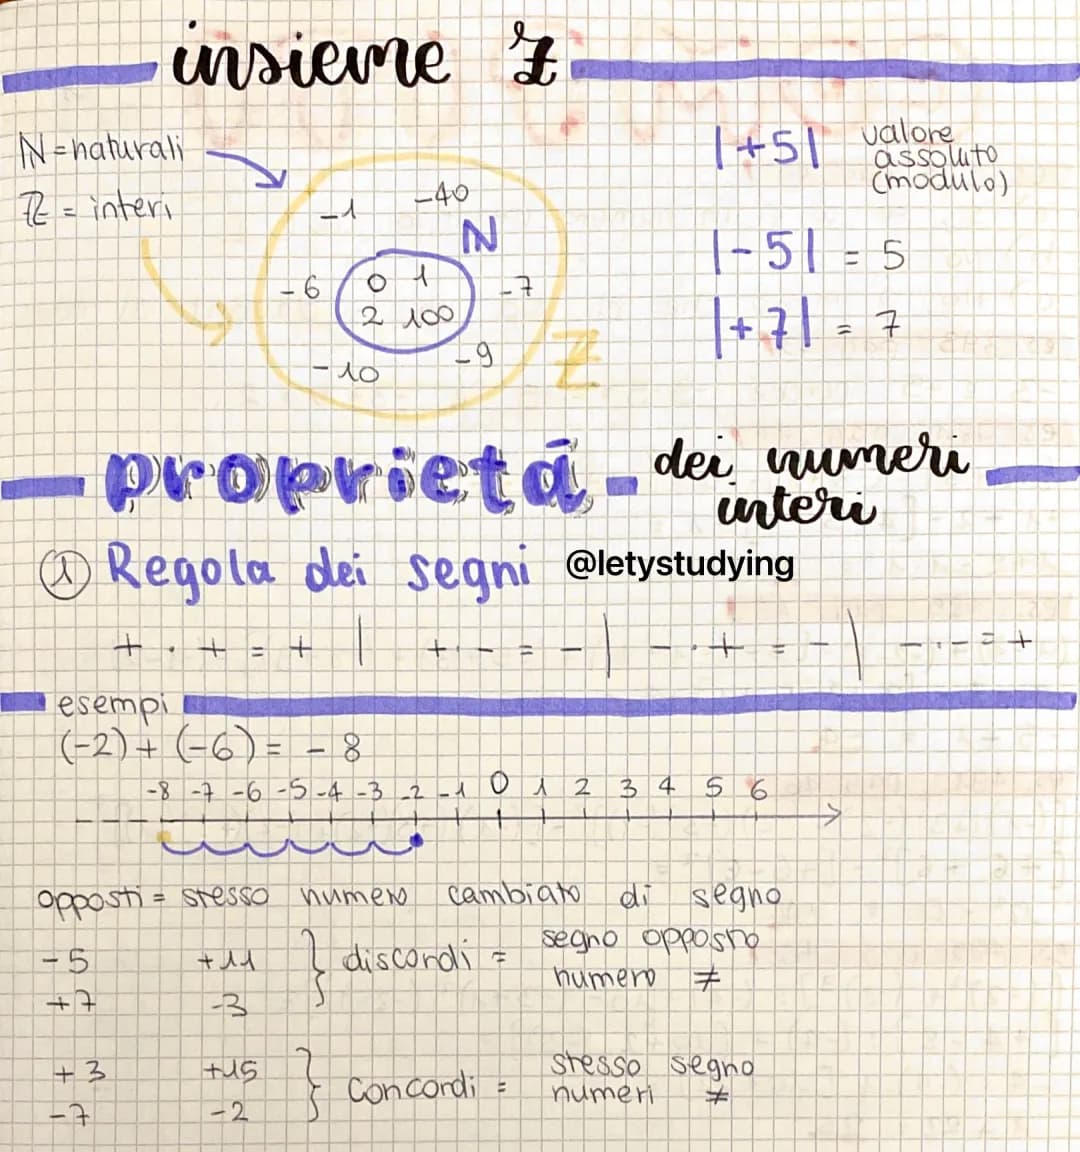 insieme ℤ
ℕ = naturali
ℤ = interi
-1 -40
N
-6 0 1 -7
2 100
-10 -9
Z
|+5| valore
assoluto
(modulo)
|-5| = 5
|+7| = 7
proprietà dei numeri
interi
① Regola dei segni @letystudying
+ · + = + | + · - = - | - · + = - | - · - = +
esempi
(-2) + (-6) = - 8
-8 -7 -6 -5 -4 -3 -2 -1 0 1 2 3 4 5 6
opposti = stesso numero cambiato di segno
-5 +11 } discordi = segno opposto
+7 -3 numero ≠
+3 +15 } concordi = stesso segno
-7 -2 numeri ≠